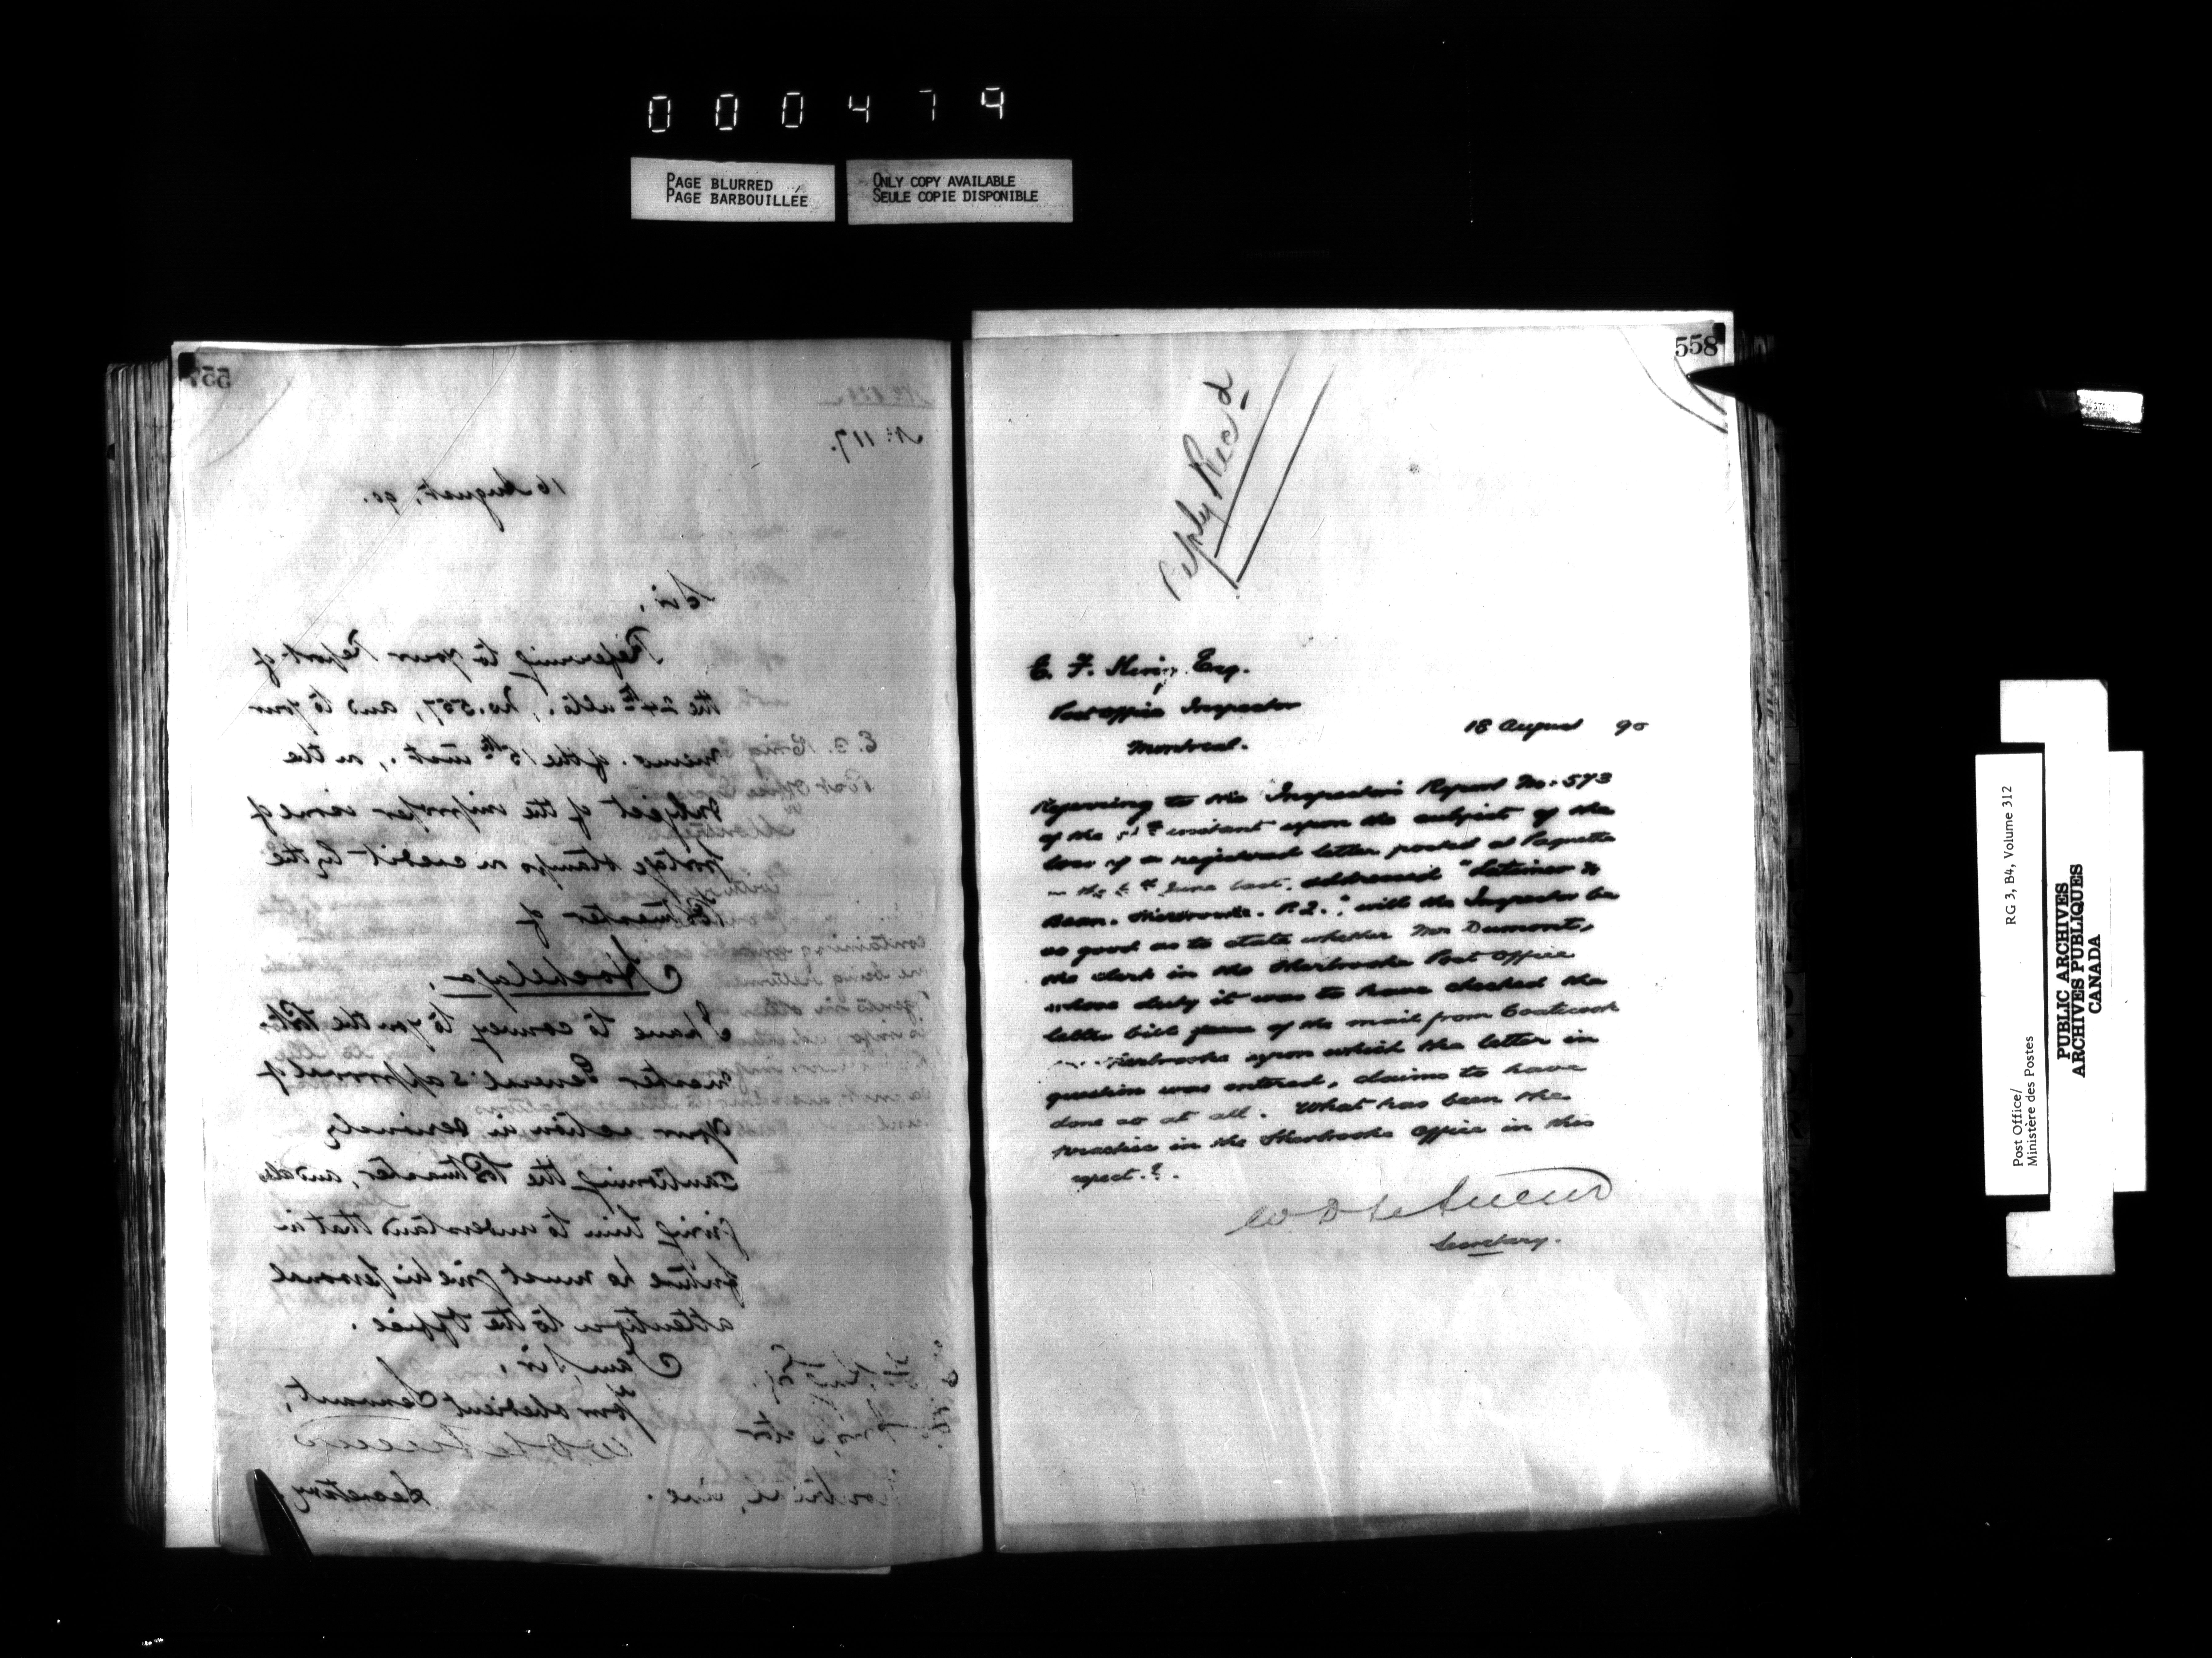 000479
PAGE BLURRED
PAGE BARBOUILLEE
ONLY COPY AVAILABLE
SEULE COPIE DISPONIBLE
557
No. 117.
16 August, 90.
Sir,
Referring to your Report of
the 24th ulto., No. 557, and to your
memo. of the 15th inst., on the
subject of the improper issue of
postage stamps on credit by the
Postmaster of
Hochelaga,
I have to convey to you the Post-
master General's approval of
your action in seriously
cautioning the Postmaster, and also
giving him to understand that in
future he must give his personal
attention to the Office.
I am, Sir,
Your obedient Servant,
W D LeSueur
Secretary.
558
Reply Rec'd
E. F. King Esq.
Post Office Inspector
Montreal.
18 August 90
Referring to the Inspector's Report No. 573
of the instant upon the subject of the
loss of a registered letter posted at Paquette
on the June last, addressed "Latimer &
Bean. Sherbrooke. P.Q.", will the Inspector be
as good as to state whether Mr Dumont,
the clerk in the Sherbrooke Post Office
whose duty it was to have checked the
letter bill of the mail from Coaticook
Sherbrooke upon which the letter in
question was entered, claims to have
done so at all. What has been the
practice in the Sherbrooke Office in this
respect.?.
W D LeSueur
Secretary.
Post Office/
Ministère des Postes
RG 3, B4, Volume 312
PUBLIC ARCHIVES
ARCHIVES PUBLIQUES
CANADA